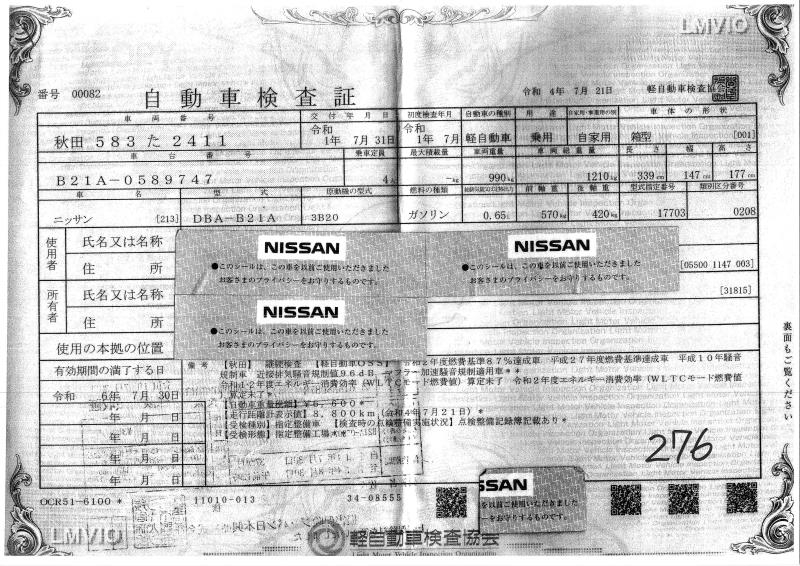 LMVIO
番号 00082
自動車検査証
令和 4年 7月 21日
軽自動車検査協会
車両番号 交付年月日 初度検査年月 自動車の種別 用途 自家用・事業用の別 車体の形状
秋田 583 た 2411 令和 1年 7月 31日 令和 1年 7月 軽自動車 乗用 自家用 箱型 [001]
車台番号 乗車定員 最大積載量 車両重量 車両総重量 長さ 幅 高さ
B21A-0589747 4人 -kg 990kg 1210kg 339cm 147cm 177cm
車名 型式 原動機の型式 燃料の種類 前軸重 後軸重 型式指定番号 類別区分番号
ニッサン [213] DBA-B21A 3B20 ガソリン 0.65L 570kg 420kg 17703 0208
使用者
氏名又は名称
住所
[05500 1147 003]
所有者
氏名又は名称
[31815]
住所
使用の本拠の位置
NISSAN
●このシールは、この車を以前ご使用いただきました
お客さまのプライバシーをお守りするものです。
NISSAN
●このシールは、この車を以前ご使用いただきました
お客さまのプライバシーをお守りするものです。
NISSAN
●このシールは、この車を以前ご使用いただきました
お客さまのプライバシーをお守りするものです。
裏面もご覧ください
有効期間の満了する日
令和 6年 7月 30日
年 月 日
年 月 日
年 月 日
年 月 日
備考
【秋田】 継続検査 【軽自動車OSS】 令和2年度燃費基準87%達成車 平成27年度燃費基準達成車 平成10年騒音
規制車 近接排気騒音規制値96dB マフラー加速騒音規制適用車**
令和12年度エネルギー消費効率(WLTCモード燃費値)算定未了 令和2年度エネルギー消費効率(WLTCモード燃費値
)算定未了*
【自動車重量税額】¥6,600**
【走行距離計表示値】8,800km(令和4年7月21日)*
【受検種別】指定整備車 【検査時の点検整備実施状況】点検整備記録簿記載あり*
【受検形態】指定整備工場*
276
NISSAN
ご使用いただきました
をお守りするものです。
OCR51-6100 *
11010-013
34-08555
LMVIO
軽自動車検査協会
Light Motor Vehicle Inspection Organization